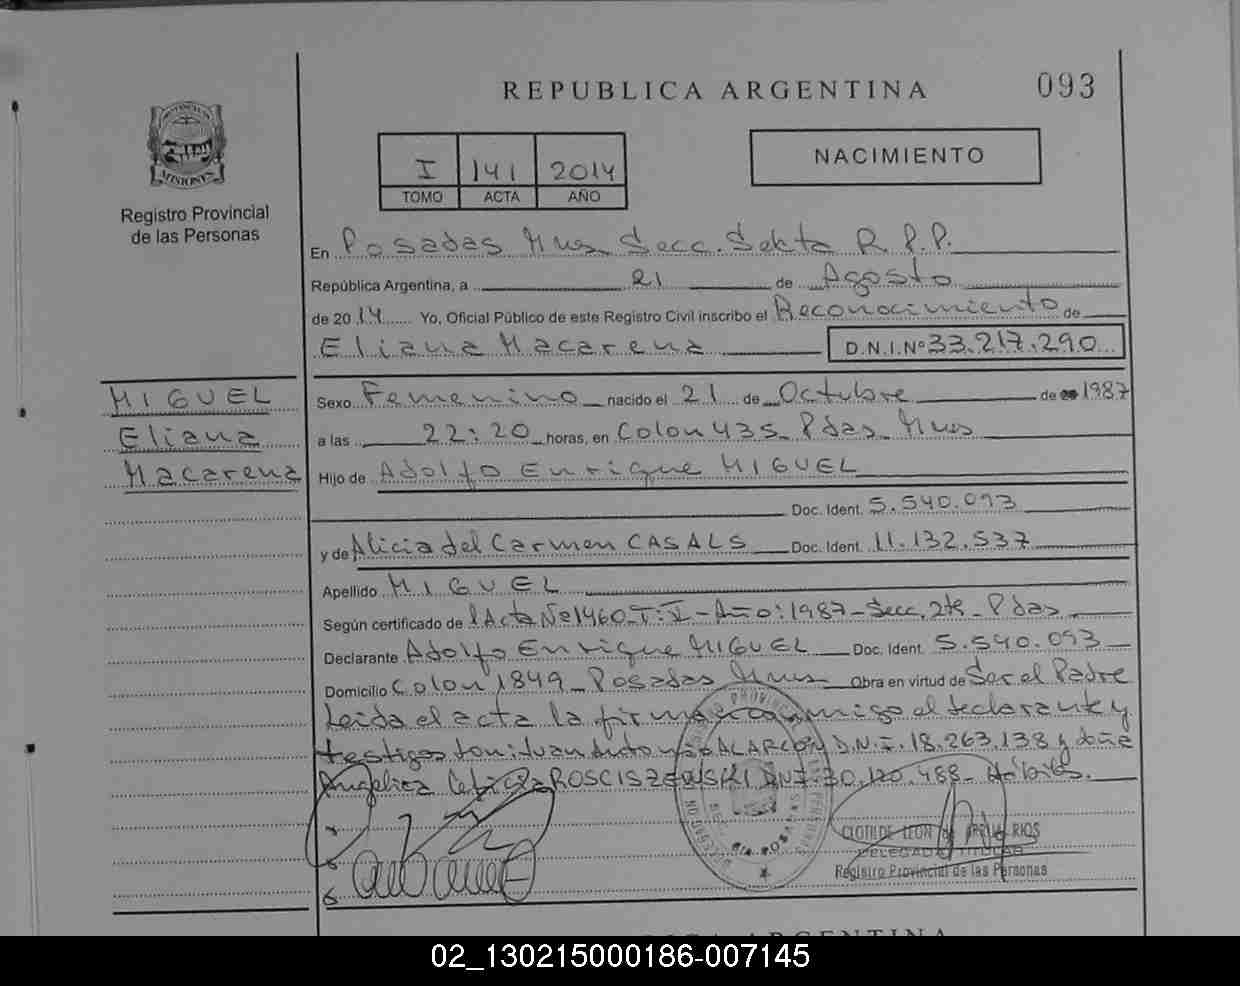 REPUBLICA ARGENTINA
093
PROVINCIA
MISIONES
Registro Provincial
de las Personas
I 141 2014
TOMO ACTA AÑO
NACIMIENTO
En Posadas Mnes Secc. Sekta R.P.P.
República Argentina, a 21 de Agosto
de 2014 Yo, Oficial Público de este Registro Civil inscribo el Reconocimiento de
Eliana Macarena D.N.I.Nº 33.217.290
MIGUEL
Eliana
Macarena
Sexo Femenino nacido el 21 de Octubre de 1987
a las 22:20 horas, en Colon 435 Pdas Mnes
Hijo de Adolfo Enrique MIGUEL
Doc. Ident. 5.540.093
y de Alicia del Carmen CASALS Doc. Ident. 11.132.537
Apellido MIGUEL
Según certificado de l Acta Nº 1460-T: V - Año: 1987 - Secc. 2da - Pdas
Declarante Adolfo Enrique MIGUEL Doc. Ident. 5.540.093
Domicilio Colon 1849 - Posadas Mnes Obra en virtud de Ser el Padre
Leida el acta la firman conmigo el declarante y
testigos don: Juan Antonio ALARCON D.N.I. 18.263.138 y doña
Angelica Leticia ROSCISZEWSKI DNI: 30.120.488 - Hábiles.
CLOTILDE LEON RIOS
DELEGADA TITULAR
Registro Provincial de las Personas
ARGENTINA
02_130215000186-007145